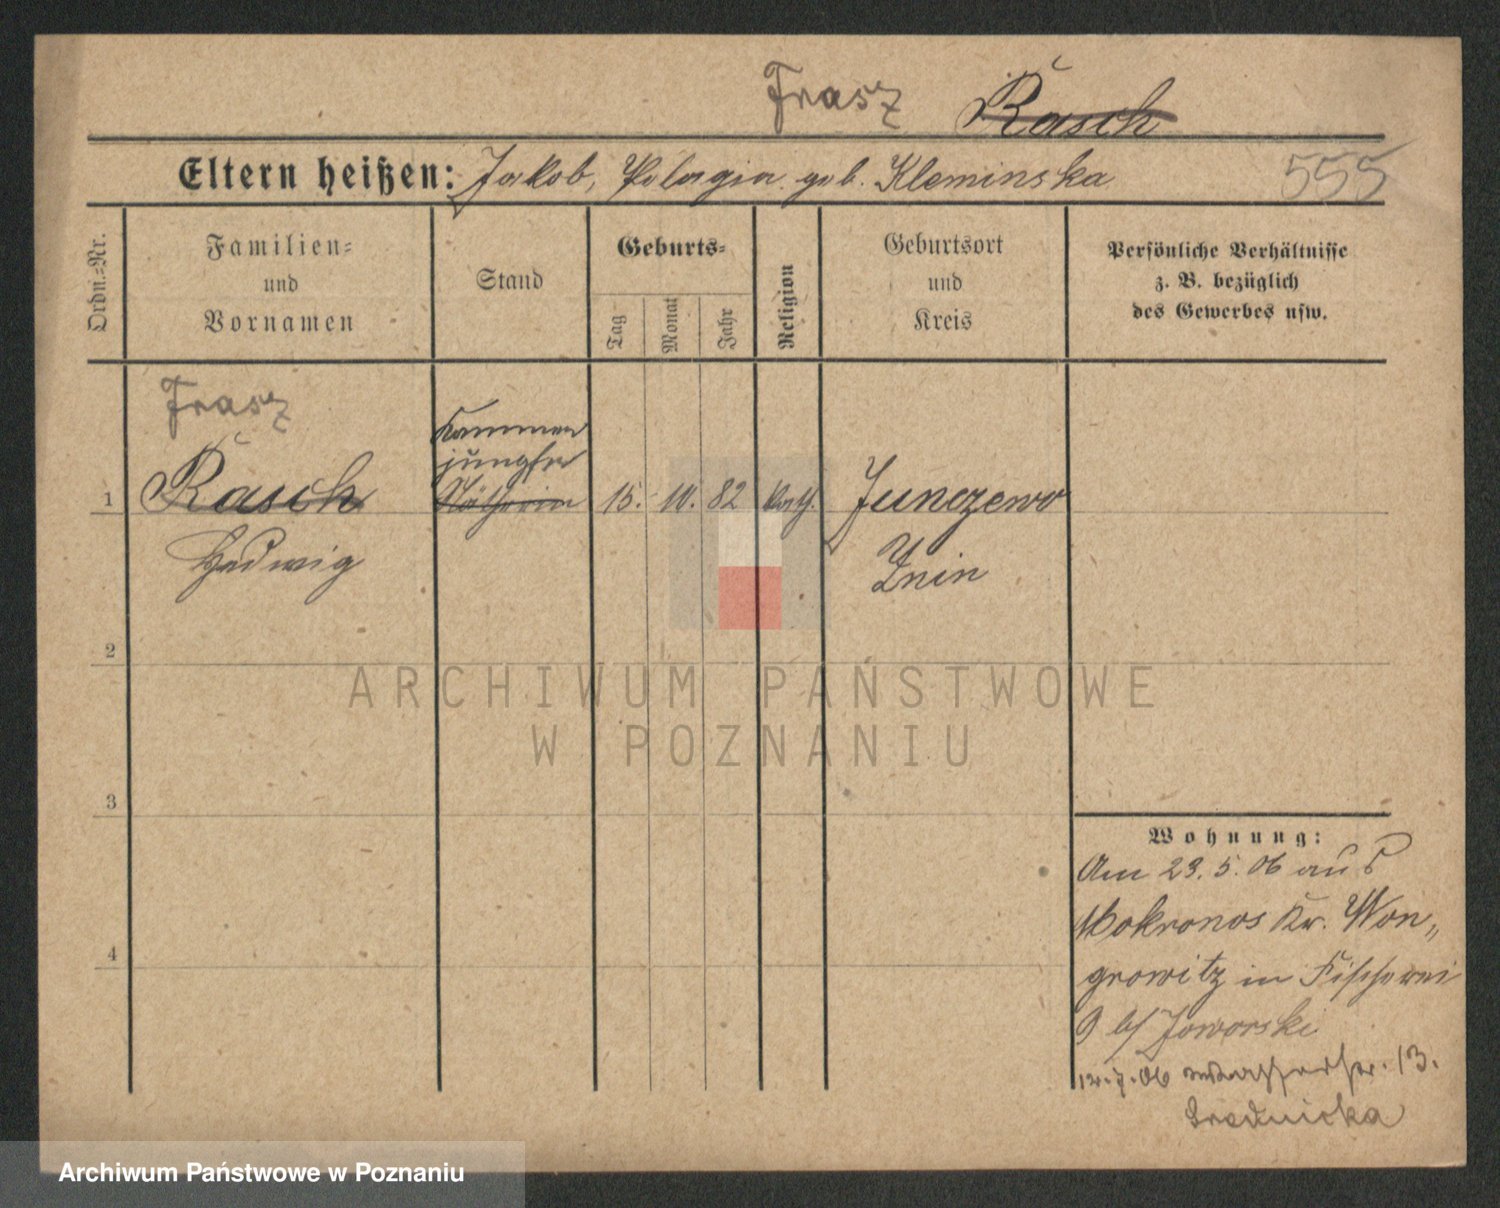 Frasz Rasch
Eltern heißen: Jakob, Pelagia geb. Kleminska
555
Ordn.=Nr.
Familien=
und
Vornamen
Stand
Geburts=
Tag
Monat
Jahr
Religion
Geburtsort
und
Kreis
Persönliche Verhältnisse
z. B. bezüglich
des Gewerbes usw.
Frasz
Kammer
jungfer
1 Rasch Nätherin 15. 10. 82 kath. Junczewo
Hedwig Znin
2
ARCHIWUM PAŃSTWOWE
W POZNANIU
3
Wohnung:
Am 23.5.06 aus
Mokronos Kr. Won„
growitz in Fischerei
9 b/ Jaworski
4
12.7.06 Wasserstr. 13.
Srednicka
Archiwum Państwowe w Poznaniu